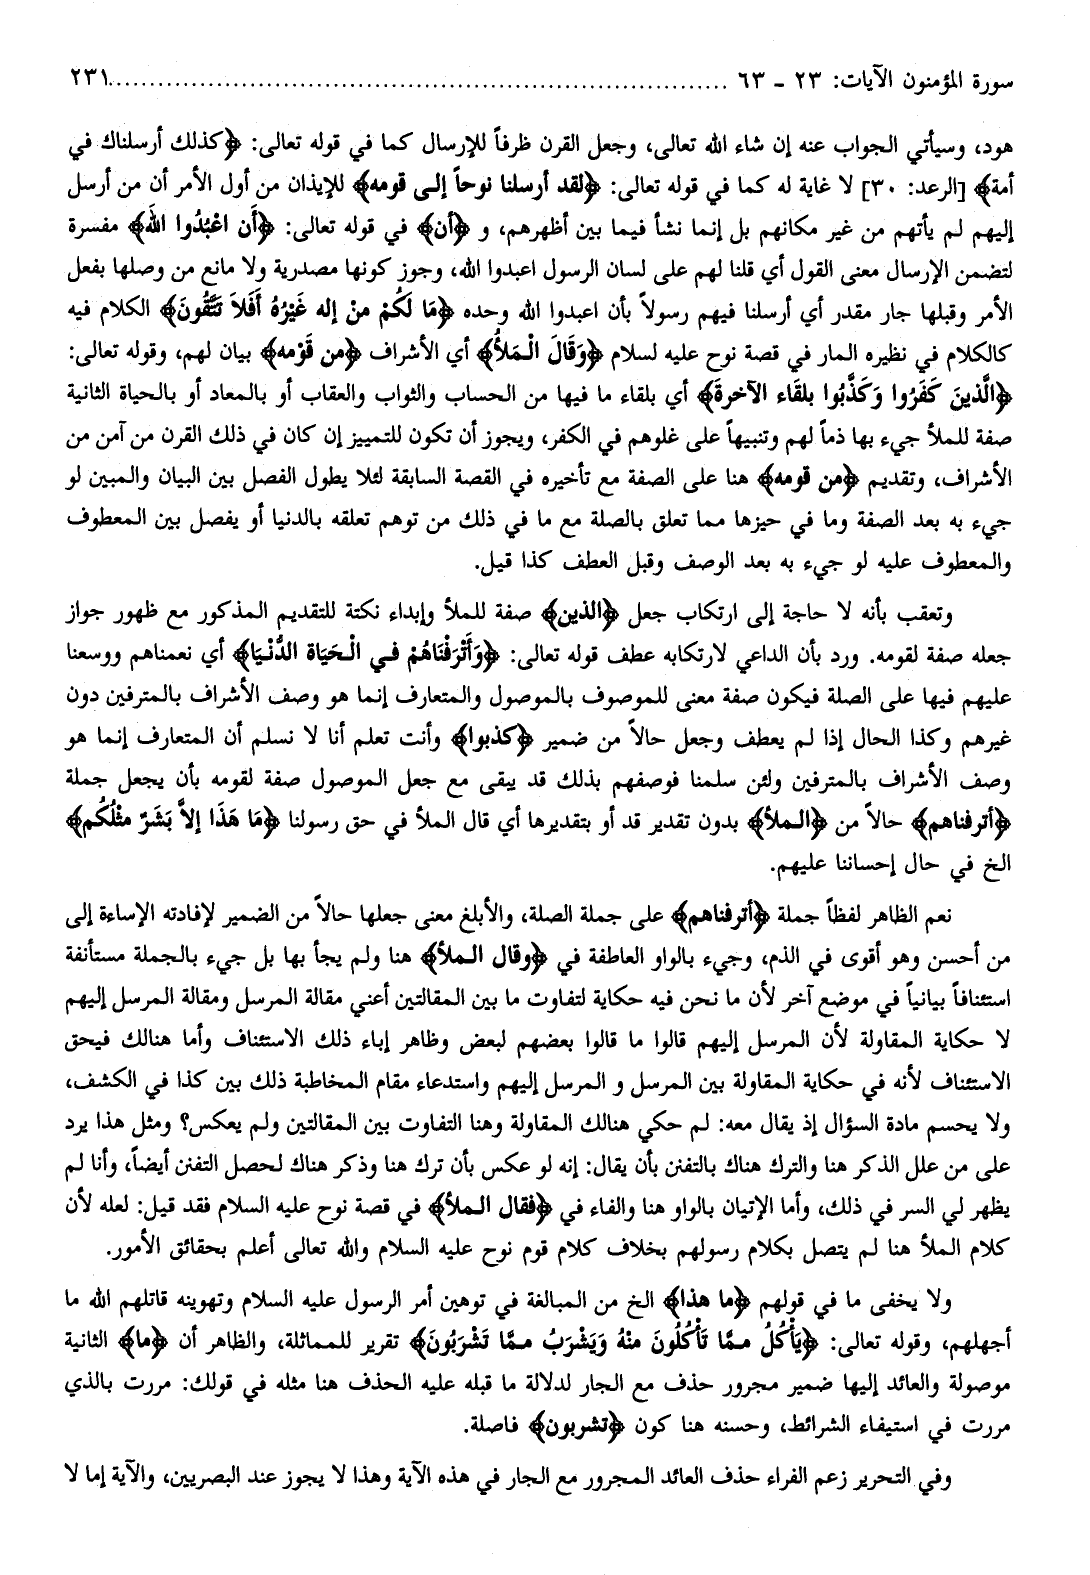 سورة المؤمنون الآيات: ٢٣ - ٦٣ ........................................................................... ٢٣١
هود، وسيأتي الجواب عنه إن شاء الله تعالى، وجعل القرن ظرفاً للإرسال كما في قوله تعالى: ﴿كذلك أرسلناك في
أمة﴾ [الرعد: ٣٠] لا غاية له كما في قوله تعالى: ﴿لقد أرسلنا نوحاً إلى قومه﴾ للإيذان من أول الأمر أن من أرسل
إليهم لم يأتهم من غير مكانهم بل إنما نشأ فيما بين أظهرهم، و ﴿أن﴾ في قوله تعالى: ﴿أَن اعْبُدُوا اللهَ﴾ مفسرة
لتضمن الإرسال معنى القول أي قلنا لهم على لسان الرسول اعبدوا الله، وجوز كونها مصدرية ولا مانع من وصلها بفعل
الأمر وقبلها جار مقدر أي أرسلنا فيهم رسولاً بأن اعبدوا الله وحده ﴿مَا لَكُمْ منْ إله غَيْرُهُ أَفَلاَ تَتَّقُونَ﴾ الكلام فيه
كالكلام في نظيره المار في قصة نوح عليه لسلام ﴿وَقَالَ الْمَلأُ﴾ أي الأشراف ﴿من قَوْمه﴾ بيان لهم، وقوله تعالى:
﴿الَّذينَ كَفَرُوا وَكَذَّبُوا بلقَاء الآخرةَ﴾ أي بلقاء ما فيها من الحساب والثواب والعقاب أو بالمعاد أو بالحياة الثانية
صفة للملأ جيء بها ذماً لهم وتنبيهاً على غلوهم في الكفر، ويجوز أن تكون للتمييز إن كان في ذلك القرن من آمن من
الأشراف، وتقديم ﴿من قومه﴾ هنا على الصفة مع تأخيره في القصة السابقة لئلا يطول الفصل بين البيان والمبين لو
جيء به بعد الصفة وما في حيزها مما تعلق بالصلة مع ما في ذلك من توهم تعلقه بالدنيا أو يفصل بين المعطوف
والمعطوف عليه لو جيء به بعد الوصف وقبل العطف كذا قيل.
وتعقب بأنه لا حاجة إلى ارتكاب جعل ﴿الذين﴾ صفة للملأ وإبداء نكتة للتقديم المذكور مع ظهور جواز
جعله صفة لقومه. ورد بأن الداعي لارتكابه عطف قوله تعالى: ﴿وَأَتْرَفْنَاهُمْ في الْحَيَاة الدُّنْيَا﴾ أي نعمناهم ووسعنا
عليهم فيها على الصلة فيكون صفة معنى للموصوف بالموصول والمتعارف إنما هو وصف الأشراف بالمترفين دون
غيرهم وكذا الحال إذا لم يعطف وجعل حالاً من ضمير ﴿كذبوا﴾ وأنت تعلم أنا لا نسلم أن المتعارف إنما هو
وصف الأشراف بالمترفين ولئن سلمنا فوصفهم بذلك قد يبقى مع جعل الموصول صفة لقومه بأن يجعل جملة
﴿أترفناهم﴾ حالاً من ﴿الملأ﴾ بدون تقدير قد أو بتقديرها أي قال الملأ في حق رسولنا ﴿مَا هَذَا إلاَّ بَشَرٌ مثْلُكُم﴾
الخ في حال إحساننا عليهم.
نعم الظاهر لفظاً جملة ﴿أترفناهم﴾ على جملة الصلة، والأبلغ معنى جعلها حالاً من الضمير لإفادته الإساءة إلى
من أحسن وهو أقوى في الذم، وجيء بالواو العاطفة في ﴿وقال الملأ﴾ هنا ولم يجأ بها بل جيء بالجملة مستأنفة
استئنافاً بيانياً في موضع آخر لأن ما نحن فيه حكاية لتفاوت ما بين المقالتين أعني مقالة المرسل ومقالة المرسل إليهم
لا حكاية المقاولة لأن المرسل إليهم قالوا ما قالوا بعضهم لبعض وظاهر إباء ذلك الاستئناف وأما هنالك فيحق
الاستئناف لأنه في حكاية المقاولة بين المرسل و المرسل إليهم واستدعاء مقام المخاطبة ذلك بين كذا في الكشف،
ولا يحسم مادة السؤال إذ يقال معه: لم حكي هنالك المقاولة وهنا التفاوت بين المقالتين ولم يعكس؟ ومثل هذا يرد
على من علل الذكر هنا والترك هناك بالتفنن بأن يقال: إنه لو عكس بأن ترك هنا وذكر هناك لحصل التفنن أيضاً، وأنا لم
يظهر لي السر في ذلك، وأما الإتيان بالواو هنا والفاء في ﴿فقال الملأ﴾ في قصة نوح عليه السلام فقد قيل: لعله لأن
كلام الملأ هنا لم يتصل بكلام رسولهم بخلاف كلام قوم نوح عليه السلام والله تعالى أعلم بحقائق الأمور.
ولا يخفى ما في قولهم ﴿ما هذا﴾ الخ من المبالغة في توهين أمر الرسول عليه السلام وتهوينه قاتلهم الله ما
أجهلهم، وقوله تعالى: ﴿يَأْكُلُ ممَّا تَأْكُلُونَ منْهُ وَيَشْرَبُ ممَّا تَشْرَبُونَ﴾ تقرير للمماثلة، والظاهر أن ﴿ما﴾ الثانية
موصولة والعائد إليها ضمير مجرور حذف مع الجار لدلالة ما قبله عليه الحذف هنا مثله في قولك: مررت بالذي
مررت في استيفاء الشرائط، وحسنه هنا كون ﴿تشربون﴾ فاصلة.
وفي التحرير زعم الفراء حذف العائد المجرور مع الجار في هذه الآية وهذا لا يجوز عند البصريين، والآية إما لا